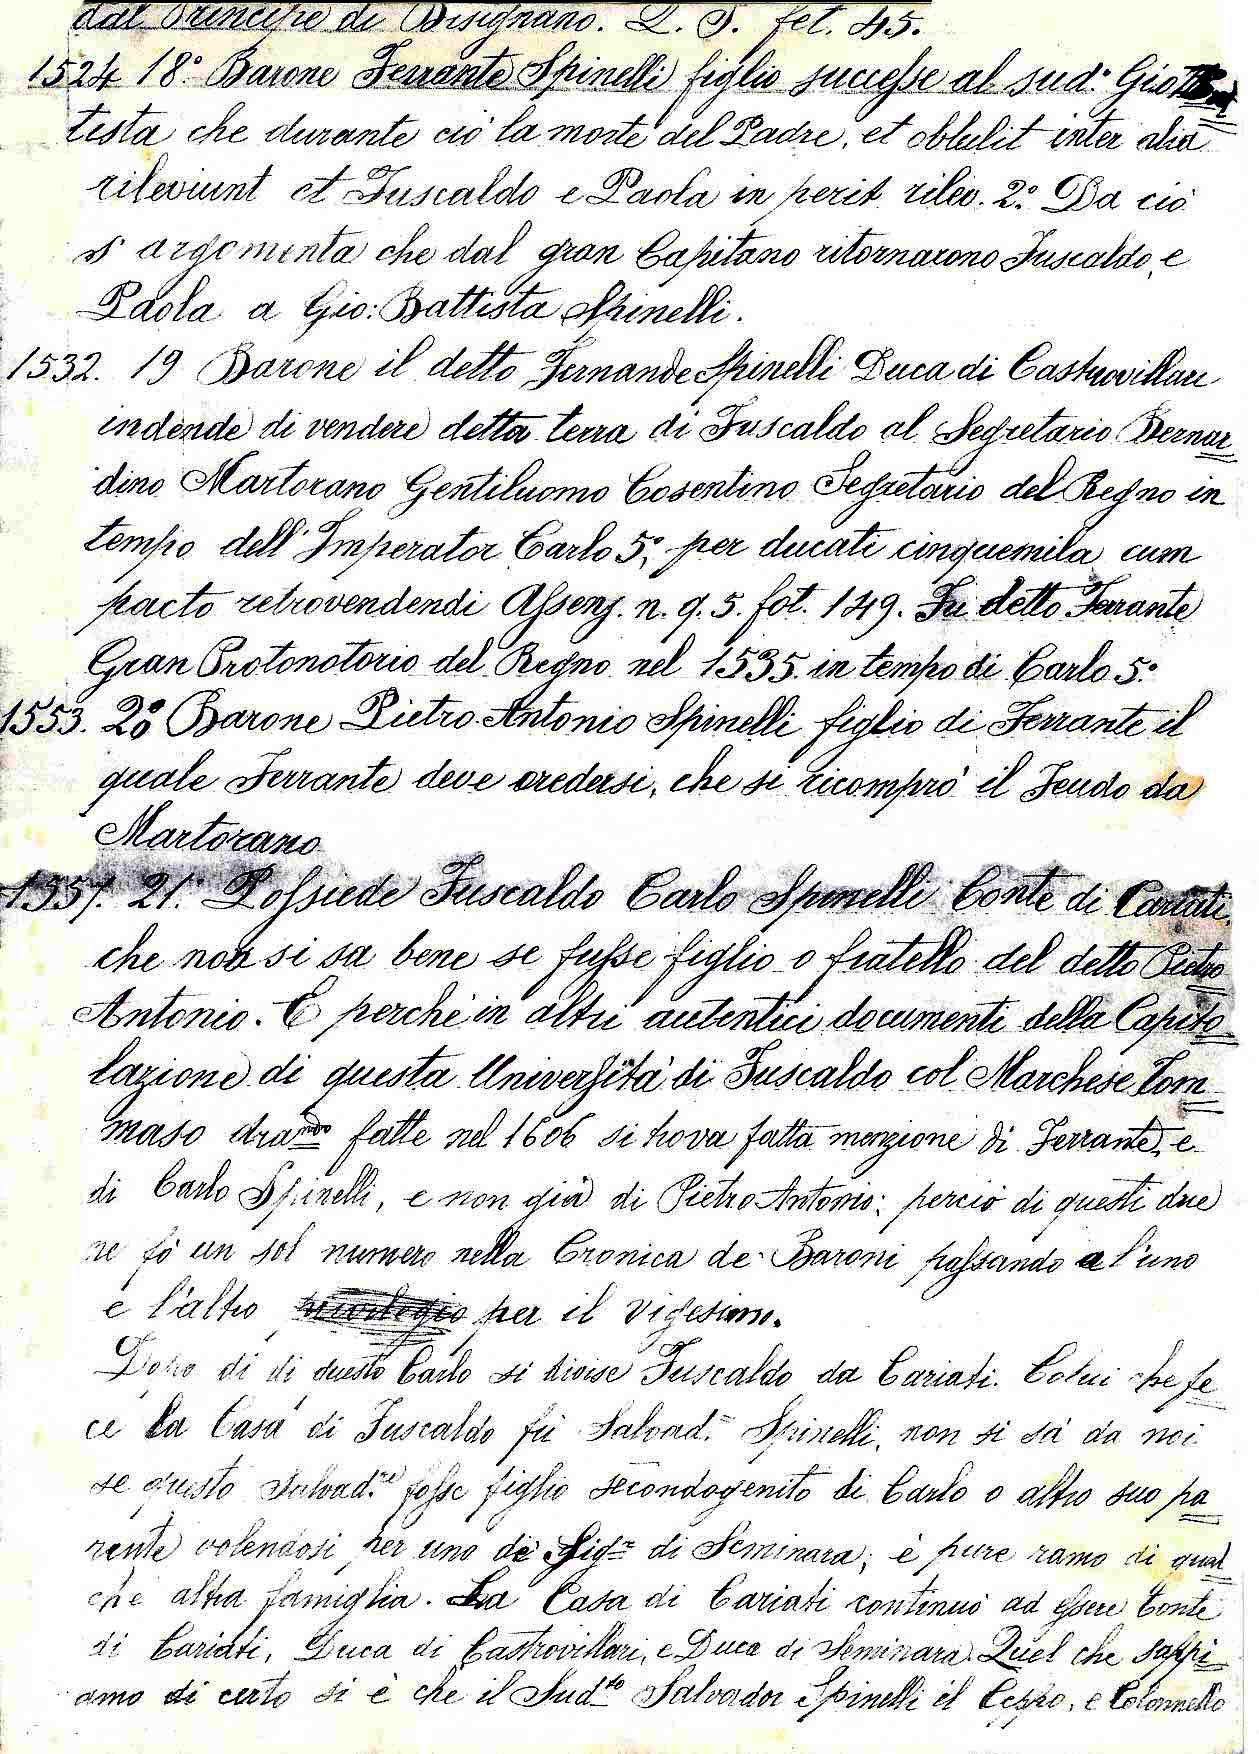 dal Principe di Bisignano. L. T. fet. 45.
1524 18° Barone Ferrante Spinelli figlio successe al sud.° Gio
tista che durante ciò la morte del Padre, et obtulit inter alia
rileviunt et Fuscaldo e Paola in perit. rilev. 2.° Da ciò
s' argomenta che dal gran Capitano ritornarono Fuscaldo, e
Paola a Gio: Battista Spinelli.
1532. 19 Barone il detto Fernande Spinelli Duca di Castrovillari
indende di vendere detta terra di Fuscaldo al Segretario Bernar
dino Martorano Gentiluomo Cosentino Segretario del Regno in
tempo dell'Imperator Carlo 5.°, per ducati cinquemila cum
pacto retrovendendi Assens. n. q. 5. fot. 149. Fu detto Ferrante
Gran Protonotorio del Regno nel 1535. in tempo di Carlo 5.°
1553. 20° Barone Pietro Antonio Spinelli figlio di Ferrante il
quale Ferrante deve credersi, che si ricomprò il Feudo da
Martorano
1557. 21.° Possiede Fuscaldo Carlo Spinelli Conte di Cariati,
che non si sa bene se fusse figlio o fratello del detto Pietro
Antonio. E perché in altri autentici documenti della Capito
lazione di questa Università di Fuscaldo col Marchese Tom
maso fatte nel 1606 si trova fatta menzione di Ferrante, e
di Carlo Spinelli, e non già di Pietro Antonio; perciò di questi due
ne fò un sol numero nella Cronica de' Baroni passando a l'uno
e l'altro per il Vigesimo.
Dopo di di questo Carlo si divise Fuscaldo da Cariati. Colui che fe
ce la Casa di Fuscaldo fù Salvad.re Spinelli, non si sà da noi
se questo Salvad.re fosse figlio secondogenito di Carlo o altro suo pa
rente volendosi per uno de Sig.ri di Seminara; è pure ramo di qual
che altra famiglia. La Casa di Cariati continuò ad essere Conte
di Cariati, Duca di Castrovillari, e Duca di Seminara. Quel che sappi
amo di certo si è che il Sud.to Salvador Spinelli il Ceppo, e Colonnello